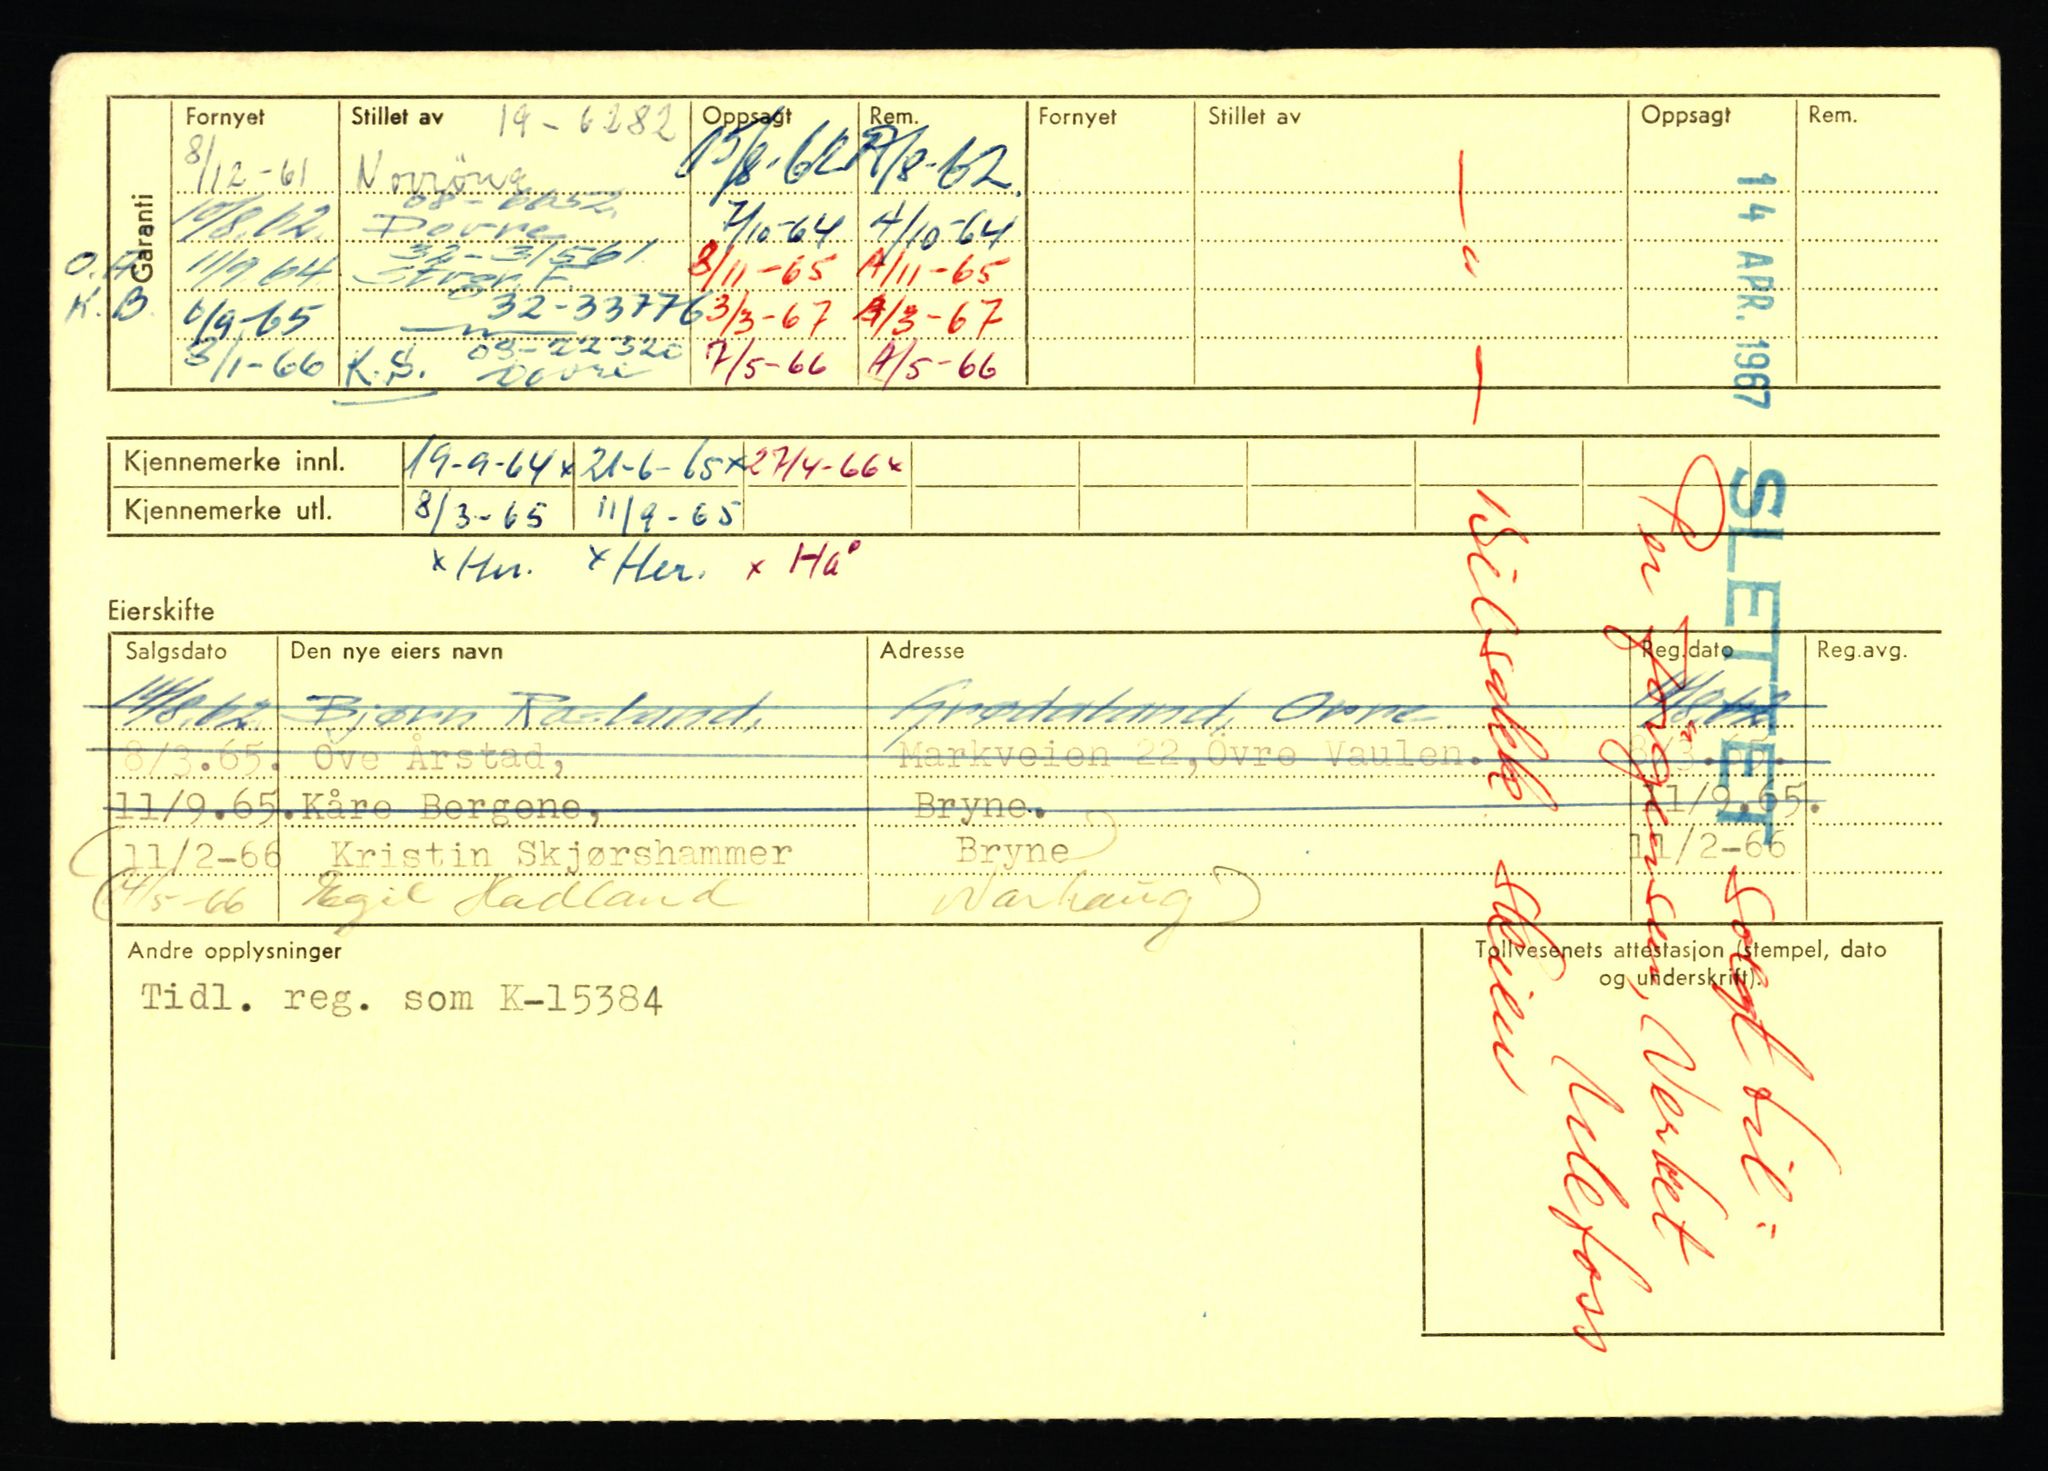 Garanti
Fornyet Stillet av 19-6282 Oppsagt Rem. Fornyet Stillet av Oppsagt Rem.
8/12-61 Norröna 15/8-62 A/8-62.
08-6652.
10/8.62. Dovre 7/10-64 A/10-64
32-31561.
O.Å 11/9.64 Storgr. F. 8/11-65 A/11-65
K.B. 32-33776
9/9-65 3/3-67 A/3-67
03-22320
3/1-66 K.S. Dovre 7/5-66 A/5-66
Kjennemerke innl. 19-9-64x 21-6-65x 27/4-66x
Kjennemerke utl. 8/3-65 11/9-65
x Her. x Her. x Hå
Eierskifte
Salgsdato Den nye eiers navn Adresse Reg.dato Reg.avg.
14/8.62. Bjørn Rosland, Grødaland, Orre
8/3.65. Ove Årstad, Markveien 22,Övre Vaulen. 8/3.65.
11/9.65. Kåre Bergene, Bryne. 11/9.65.
11/2-66 Kristin Skjørshammer Bryne 11/2-66
4/5-66 Egil Hadland Varhaug
Andre opplysninger
Tidl. reg. som K-15384
Tollvesenets attestasjon (stempel, dato
og underskrift).
14 APR. 1967
SLETTET
Solgt til:
Per Jörgensen, Verket
Ulefoss
— " — Bilsaks Skien